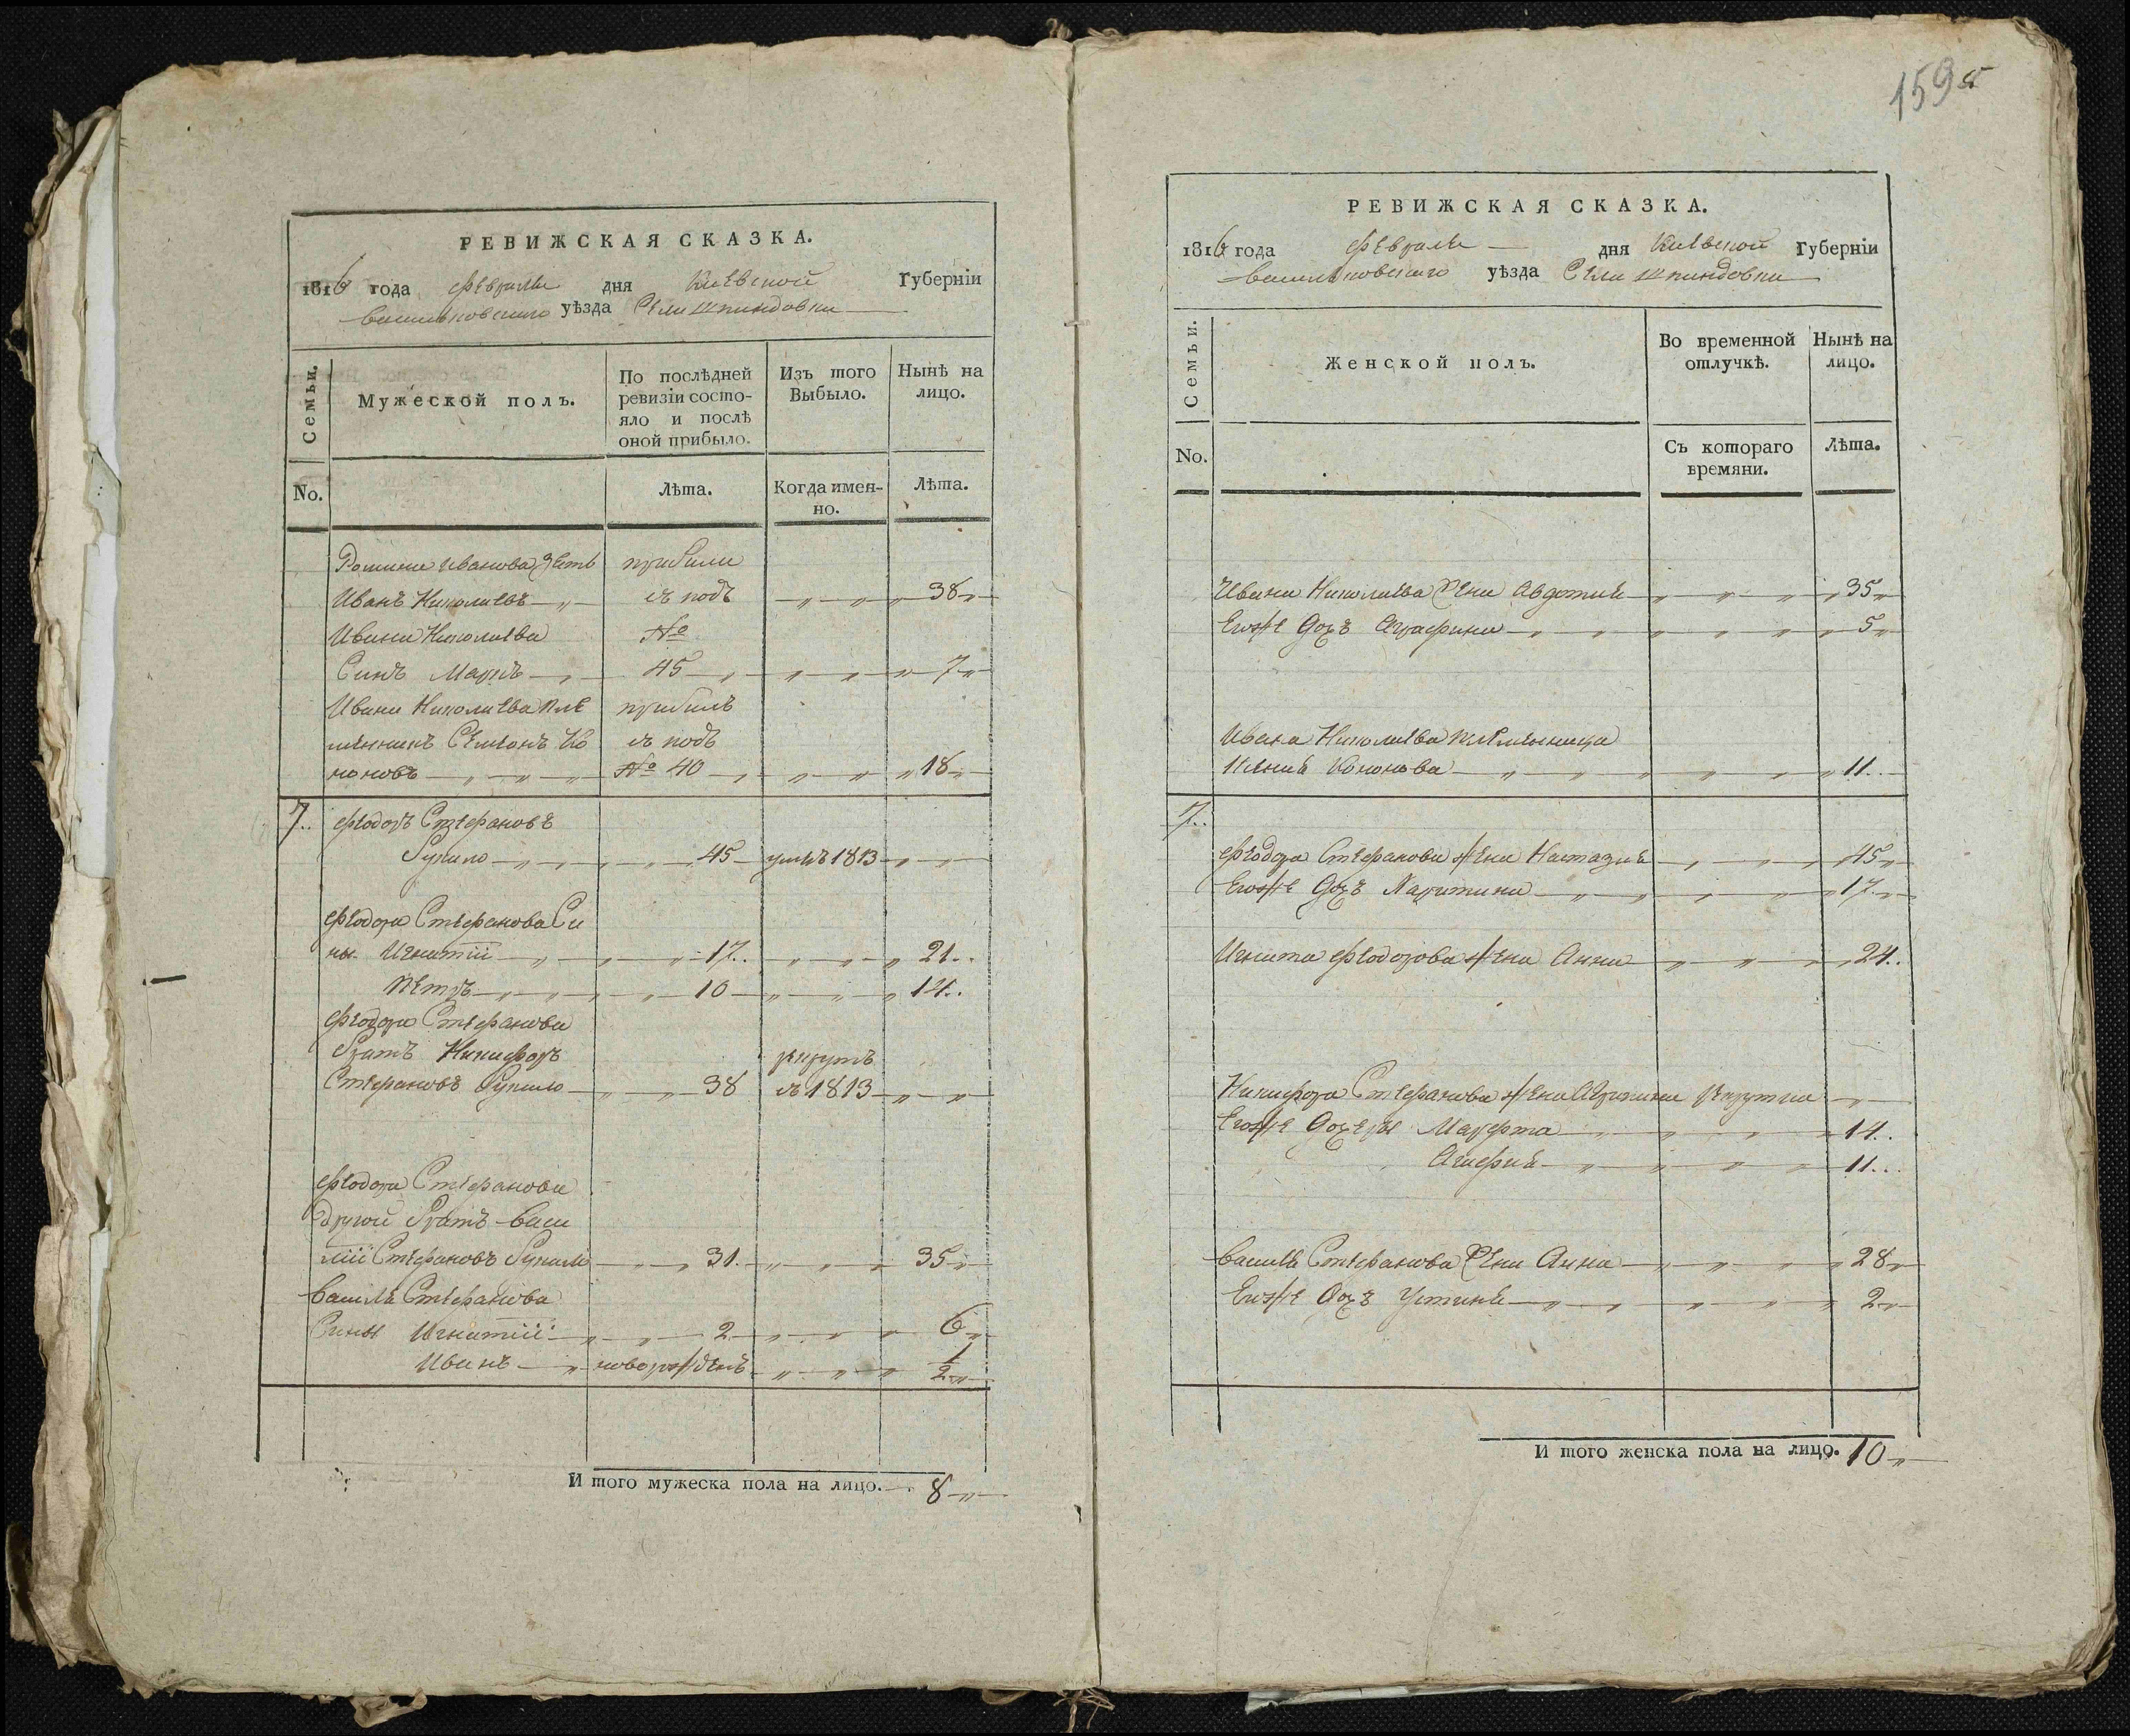 159
РЕВИЖСКАЯ СКАЗКА.
1816 года февраля дня Киевской Губерніи
васильковского уѣзда Села Шпиндовки
Семьи.
Мужеской полъ.
По послѣдней ревизіи состо-
яло и послѣ
оной прибыло.
Изъ того
Выбыло.
Нынѣ на
лицо.
No.
Лѣта.
Когда имен-
но.
Лѣта.
Иванова зять прибыли
Иванъ Николаевъ изъ подъ 38
Ивана Николаева №
Синъ Маркъ 45 7
Ивана Николаева пле прибылъ
мянникъ Семіонъ Ко изъ подъ
ноновъ № 40 18
7. Феодоръ Стефановъ
45 умеръ 1813
Феодора Стефанова Си
ны Игнатій 17 21
Петръ 10 14
Феодора Стефанова
братъ Никифоръ рекрутъ
Стефановъ 38 въ 1813
Феодора Стефанова
другой братъ Васи
лій Стефановъ 31 35
Василя Стефанова
Сины Игнатій 2 6
Иванъ новорожденъ 1/2
И того мужеска пола на лицо. 8
РЕВИЖСКАЯ СКАЗКА.
1816 года февраля дня Киевской Губерніи
васильковского уѣзда Села Шпиндовки
Семьи.
Женской полъ.
Во временной
отлучкѣ.
Нынѣ на
лицо.
No.
Съ котораго
времяни.
Лѣта.
Ивана Николаева Жена Авдотия 35
Егоже Дочъ Аграфина 5
Ивана Николаева племяница
Кононова 11
7.
Феодора Стефанова жена Настазия 45
Егоже Дочъ Харитина 17
Игната Феодорова жена Анна 24
Никифора Стефанова жена рекрутка
Егоже Дочеры Марфта 14
Агафия 11
Василя Стефанова Жена Анна 28
Егоже Дочъ Устиня 2
И того женска пола на лицо. 10